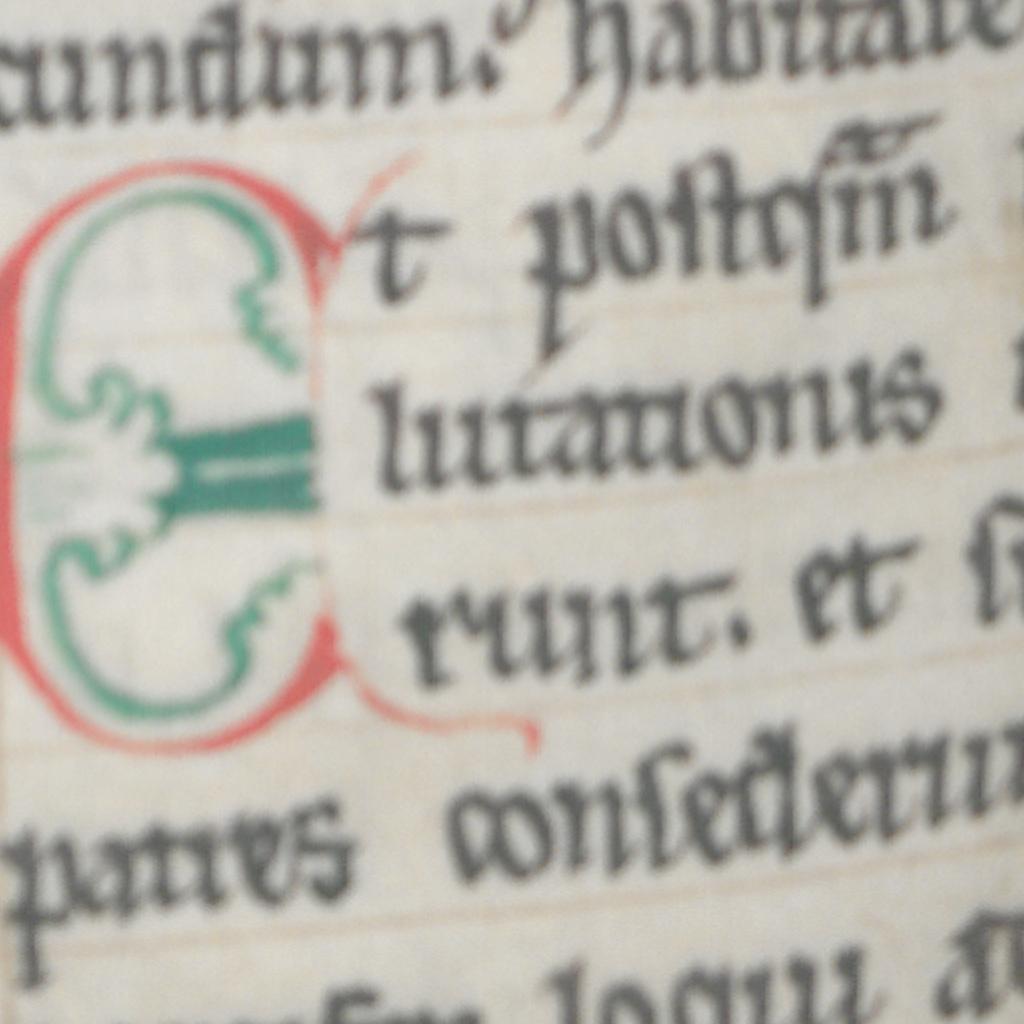 cundum. habitare
Et postqm̄
lutationis
runt. et
patres consederun
loqui